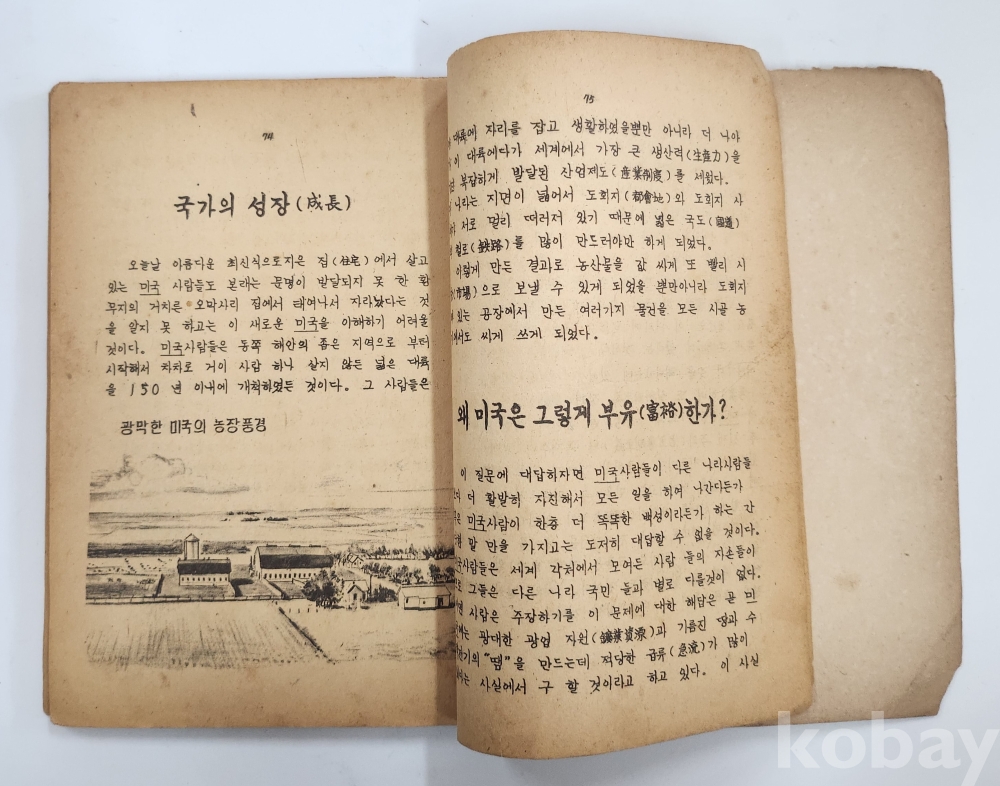 74
국가의 성장(成長)
오늘날 아름다운 최신식으로지은 집(住宅)에서 살고
있는 미국 사람들도 본래는 문명이 발달되지 못 한 황
무지의 거치른 오막사리 집에서 태여나서 자라났다는 것
을 알지 못 하고는 이 새로운 미국을 이해하기 어려울
것이다. 미국사람들은 동쪽 해안의 좁은 지역으로 부터
시작해서 차차로 거이 사람 하나 살지 않든 넓은 대륙
을 150 년 이내에 개척하였든 것이다. 그 사람들은
광막한 미국의 농장풍경
75
대륙에 자리를 잡고 생활하였을뿐만 아니라 더 나아
이 대륙에다가 세계에서 가장 큰 생산력(生産力)을
복잡하게 발달된 산업제도(産業制度)를 세웠다.
나라는 지면이 넓어서 도회지(都會地)와 도회지 사
서로 멀리 떠러저 있기 때문에 넓은 국도(國道)
철로(鉄路)를 많이 만드러야만 하게 되었다.
이렇게 만든 결과로 농산물을 값 싸게 또 빨리 시
(市場)으로 보낼 수 있게 되었을 뿐만아니라 도회지
있는 공장에서 만든 여러가지 물건을 모든 시골 농
에서도 싸게 쓰게 되었다.
왜 미국은 그렇게 부유(富裕)한가?
이 질문에 대답하자면 미국사람들이 다른 나라사람들
더 활발히 자진해서 모든 일을 하여 나간다든가
미국사람이 한층 더 똑똑한 백성이라든가 하는 간
말 만을 가지고는 도저히 대답할 수 없을 것이다.
사람들은 세계 각처에서 모여든 사람 들의 자손들이
그들은 다른 나라 국민 들과 별로 다를것이 없다.
사람은 주장하기를 이 문제에 대한 해답은 곧 미
광대한 광업 자원(鑛業資源)과 기름진 땅과 수
전기의 "땜"을 만드는데 적당한 급류(急流)가 많이
사실에서 구 할 것이라고 하고 있다. 이 사실
kobay